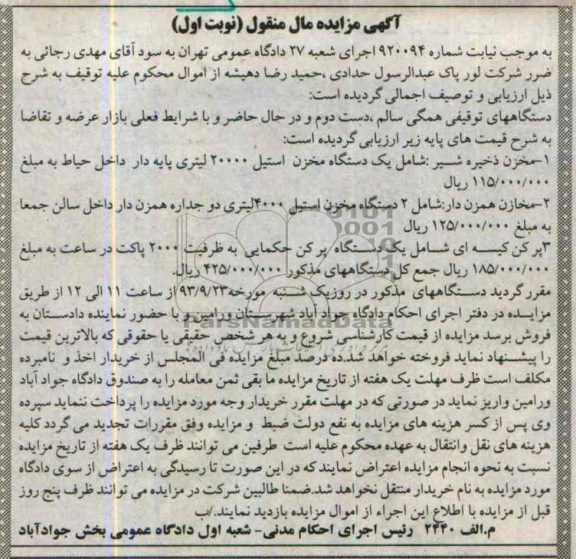 آگهی مزایده مال منقول (نوبت اول)
به موجب نیابت شماره ۹۲۰۰۹۴ اجرای شعبه ۲۷ دادگاه عمومی تهران به سود آقای مهدی رجائی به
ضرر شرکت لور پاک عبدالرسول حدادی ،حمید رضا دهیشه از اموال محکوم علیه توقیف به شرح
ذیل ارزیابی و توصیف اجمالی گردیده است:
دستگاههای توقیفی همگی سالم ،دست دوم و در حال حاضر و با شرایط فعلی بازار عرضه و تقاضا
به شرح قیمت های پایه زیر ارزیابی گردیده است:
۱-مخزن ذخیره شیر :شامل یک دستگاه مخزن استیل ۲۰۰۰۰ لیتری پایه دار داخل حیاط به مبلغ
۱۱۵/۰۰۰/۰۰۰ ریال
۲-مخازن همزن دار:شامل ۲ دستگاه مخزن استیل ۴۰۰۰لیتری دو جداره همزن دار داخل سالن جمعا
به مبلغ ۱۲۵/۰۰۰/۰۰۰ ریال
۳پر کن کیسه ای شامل یک دستگاه پر کن حکمایی به ظرفیت ۲۰۰۰ پاکت در ساعت به مبلغ
۱۸۵/۰۰۰/۰۰۰ ریال جمع کل دستگاههای مذکور ۴۲۵/۰۰۰/۰۰۰ ریال.
مقرر گردید دستگاههای مذکور در روزیک شنبه مورخه۹۳/۹/۲۳ از ساعت ۱۱ الی ۱۲ از طریق
مزایده در دفتر اجرای احکام دادگاه جواد آباد شهرستان ورامین و با حضور نماینده دادستان به
فروش برسد مزایده از قیمت کارشناسی شروع و به هر شخص حقیقی یا حقوقی که بالاترین قیمت
را پیشنهاد نماید فروخته خواهد شد.ده درصد مبلغ مزایده فی المجلس از خریدار اخذ و نامبرده
مکلف است ظرف مهلت یک هفته از تاریخ مزایده ما بقی ثمن معامله را به صندوق دادگاه جواد آباد
ورامین واریز نماید در صورتی که در مهلت مقرر خریدار وجه مورد مزایده را پرداخت ننماید سپرده
وی پس از کسر هزینه های مزایده به نفع دولت ضبط و مزایده وفق مقررات تجدید می گردد کلیه
هزینه های نقل وانتقال به عهده محکوم علیه است طرفین می توانند ظرف یک هفته از تاریخ مزایده
نسبت به نحوه انجام مزایده اعتراض نمایند که در این صورت تا رسیدگی به اعتراض از سوی دادگاه
مورد مزایده به نام خریدار منتقل نخواهد شد.ضمنا طالبین شرکت در مزایده می توانند ظرف پنج روز
قبل از مزایده با اطلاع این اجراء از اموال مزایده بازدید نمایند./ب
م.الف ۲۲۴۰ رئیس اجرای احکام مدنی- شعبه اول دادگاه عمومی بخش جوادآباد
ParsNamadData